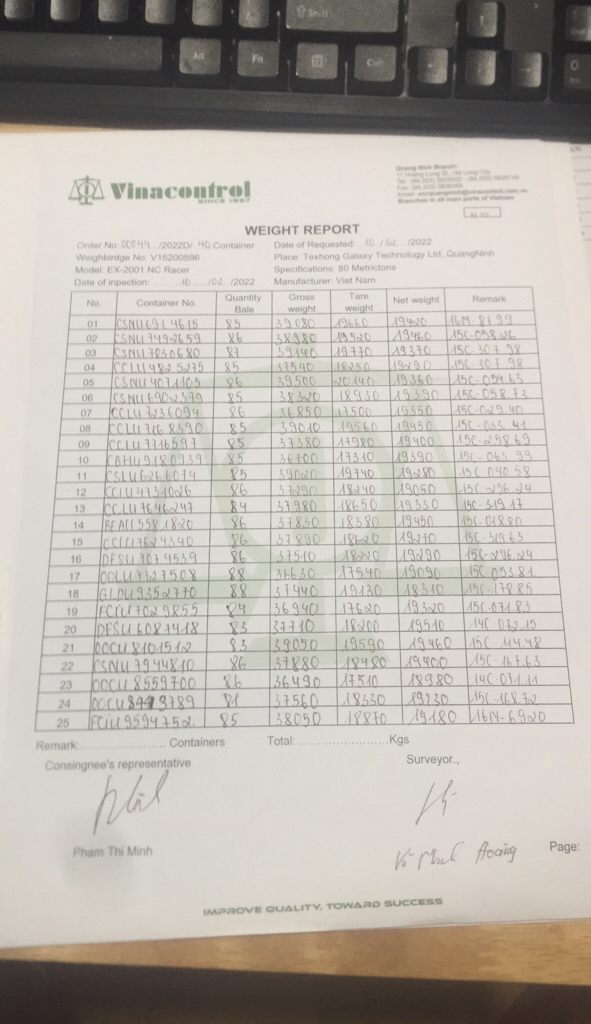 Shift
Alt
Fn
Ctrl
Vinacontrol
SINCE 1957
Quang Ninh Branch:
Branches in all main ports of Vietnam
WEIGHT REPORT
Order No: /2022D/ 40 Container Date of Requested: 10 / 02 /2022
Weighbirdge No: V15200596 Place: Texhong Galaxy Technology Ltd.,QuangNinh
Model: EX-2001 NC Racer Specifications: 80 Metrictons
Date of inpection: 10 / 02 /2022 Manufacturer: Viet Nam
No. Container No. Quantity Bale Gross weight Tare weight Net weight Remark
01 CSNU6914615 85 39080 19660 19420 16M-8199
02 CSNU7492659 86 38980 19520 19460 15C-058.26
03 CSNU7830680 87 39140 19770 19370 15C-307.98
04 CCLU4825275 85 37540 18250 19290 15C-307.98
05 CSNU4071105 86 39500 20140 19360 15C-054.63
06 CSNU6902379 85 38320 18930 19390 15C-058.73
07 CCLU7236094 86 36850 17500 19350 15C-029.40
08 CCLU7168390 85 39010 19560 19450 15C-033.41
09 CCLU7716597 85 37380 17980 19400 15C-258.69
10 85 36700 17310 19390 15C-063.99
11 CSLU6266074 85 39020 19740 19280 15C-040.58
12 CCLU4731026 86 37290 18240 19050 15C-296.24
13 CCLU7646247 84 37980 18650 19330 15C-319.17
14 BEAU5581820 86 37830 18380 19450 15C-018.80
15 CCLU7624340 86 37890 18620 19270 15C-319.63
16 DFSU7074539 86 37510 18220 19290 15C-296.24
17 OOLU7727508 88 36630 17540 19090 15C-053.81
18 GLDU9352770 88 37440 19130 18310 15C-178.85
19 FCIU7029855 84 36940 17620 19320 15C-071.83
20 DFSU6081418 83 37710 18200 19510 14C-072.15
21 OOCU8101512 83 39050 19590 19460 15C-44.48
22 CSNU7944810 86 37880 18480 19400 15C-167.63
23 OOCU8559700 86 36490 17510 18980 14C-071.11
24 37560 18330 19230 15C-168.72
25 FCIU9594752 85 38050 18870 19180 16M-6920
Remark: Containers Total: Kgs
Consingnee's representative Surveyor.,
Pham Thi Minh
Page:
IMPROVE QUALITY, TOWARD SUCCESS